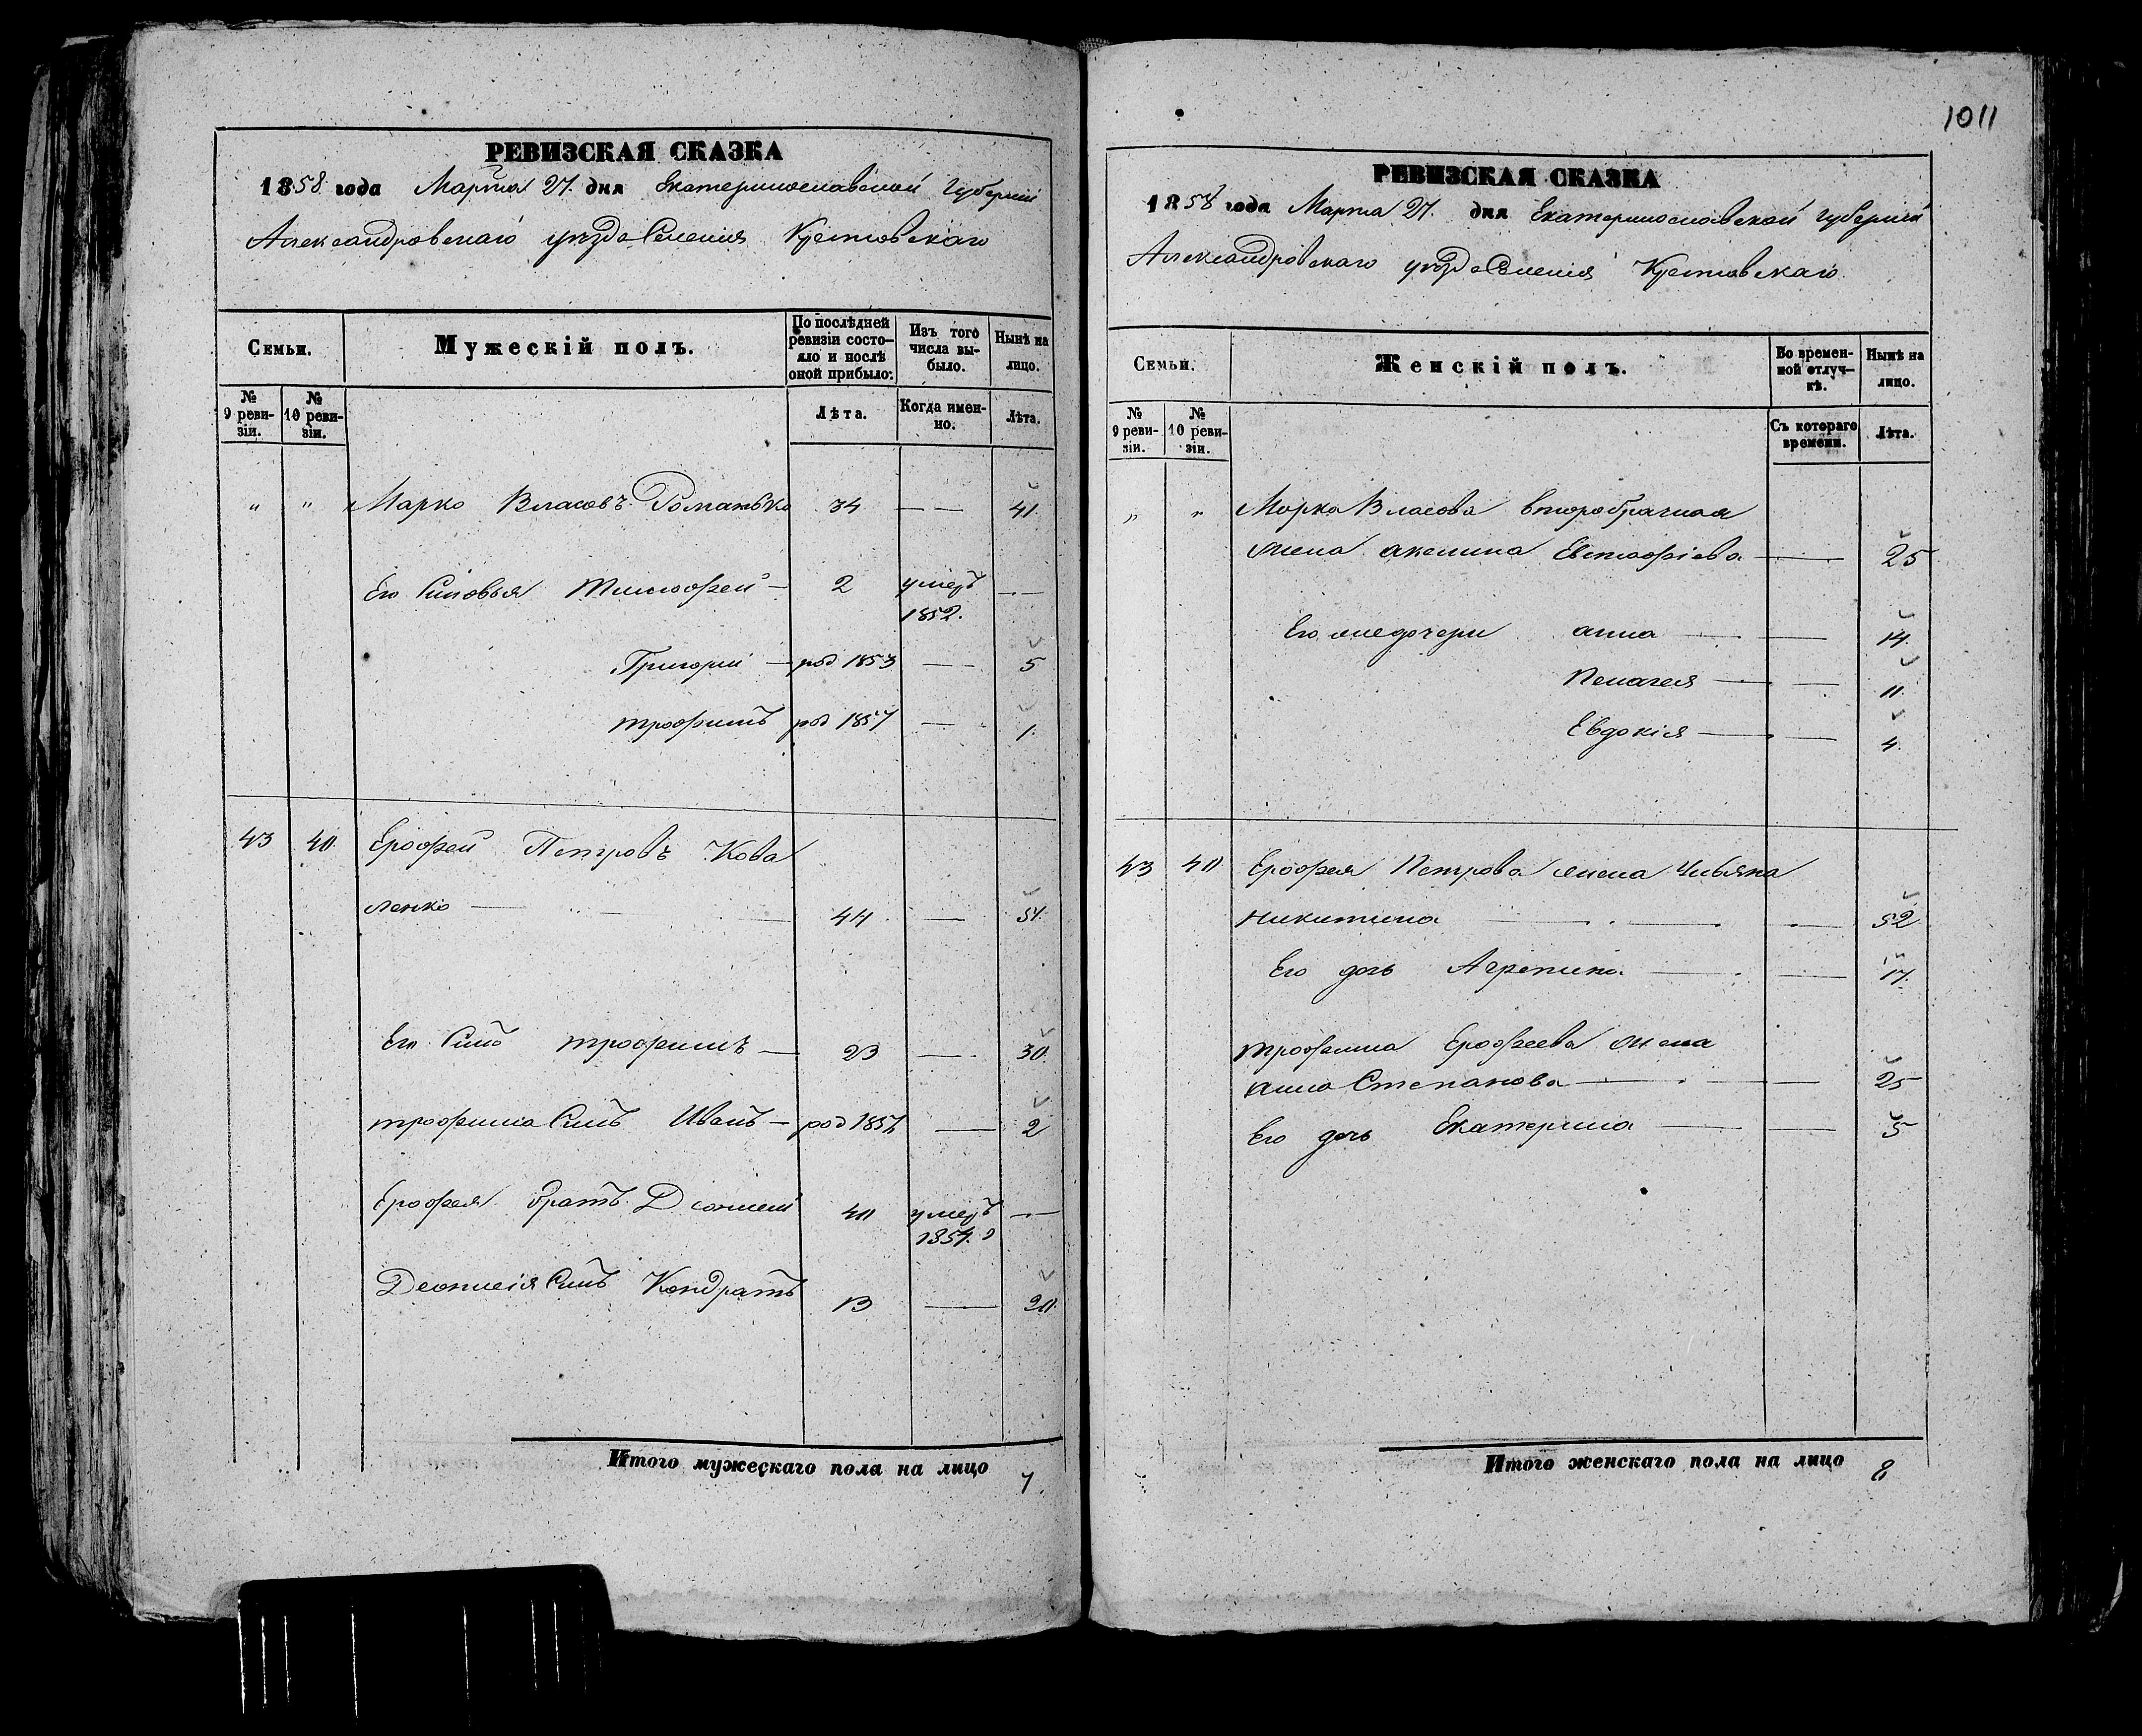 1011
РЕВИЗСКАЯ СКАЗКА
1858 года Марта 27. дня Екатеринославской Губернии
Александровскаго уезда Селения Кременовскаго
Семьи.
Мужескій полъ.
По послѣдней ревизіи состояло и послѣ оной прибыло.
Изъ того числа выбыло.
Нынѣ на лицо.
№ 9 ревизіи.
№ 10 ревизіи.
Лѣта.
Когда именно.
Лѣта.
" " Марко Власовъ Романько 34 — — 41.
Его Сыновья Тимофей — 2 умеръ 1852. — —
Григорий — род 1853 — 5
трофимъ род 1857 — 1.
43 40. Ерофей Петровъ Кова
ленко — 44 — 51.
Его Сынъ трофимъ — 23 — 30.
трофима Сынъ Иванъ — род 1856 — 2
Ерофея братъ Дионисий 40 умеръ 1854. —
Деонисія Сынъ Кондратъ 13 — 20.
Итого мужескаго пола на лицо 7.
РЕВИЗСКАЯ СКАЗКА
1858 года Марта 27. дня Екатеринославской губернии
Александровскаго уезда Селения
Семьи.
Женскій полъ.
Во временной отлучкѣ.
Нынѣ на лицо.
№ 9 ревизіи.
№ 10 ревизіи.
Съ котораго времени.
Лѣта.
" " Марка Власова второбрачная
жена акелина Евстафіева — — 25
Его дочери анна — — 14.
Пелагея — — 11.
Евдокія — — 4.
43 40 Ерофея Петрова жена Ульяна
никитина — — 52
Его дочь Агрепина — — 17.
трофима Ерофеева жена
анна Степанова — — 25
Его дочь Екатерина — — 5
Итого женскаго пола на лицо 8